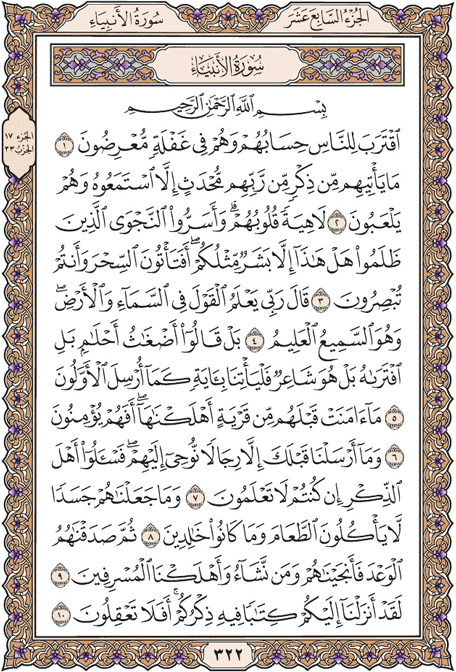 سُورَةُ الأَنبِيَاءِ الجُزْءُ السَّابِعَ عَشَرَ
الجزء ١٧
الحزب ٣٣
سُورَةُ الأَنبِيَاءِ
بِسْمِ ٱللَّهِ ٱلرَّحْمَٰنِ ٱلرَّحِيمِ
ٱقْتَرَبَ لِلنَّاسِ حِسَابُهُمْ وَهُمْ فِى غَفْلَةٍ مُّعْرِضُونَ ١
مَا يَأْتِيهِم مِّن ذِكْرٍ مِّن رَّبِّهِم مُّحْدَثٍ إِلَّا ٱسْتَمَعُوهُ وَهُمْ
يَلْعَبُونَ ٢ لَاهِيَةً قُلُوبُهُمْ ۗ وَأَسَرُّوا۟ ٱلنَّجْوَى ٱلَّذِينَ
ظَلَمُوا۟ هَلْ هَٰذَآ إِلَّا بَشَرٌ مِّثْلُكُمْ ۖ أَفَتَأْتُونَ ٱلسِّحْرَ وَأَنتُمْ
تُبْصِرُونَ ٣ قَالَ رَبِّى يَعْلَمُ ٱلْقَوْلَ فِى ٱلسَّمَآءِ وَٱلْأَرْضِ ۖ
وَهُوَ ٱلسَّمِيعُ ٱلْعَلِيمُ ٤ بَلْ قَالُوٓا۟ أَضْغَٰثُ أَحْلَٰمٍۭ بَلِ
ٱفْتَرَىٰهُ بَلْ هُوَ شَاعِرٌ فَلْيَأْتِنَا بِـَٔايَةٍ كَمَآ أُرْسِلَ ٱلْأَوَّلُونَ
٥ مَآ ءَامَنَتْ قَبْلَهُم مِّن قَرْيَةٍ أَهْلَكْنَٰهَآ ۖ أَفَهُمْ يُؤْمِنُونَ
٦ وَمَآ أَرْسَلْنَا قَبْلَكَ إِلَّا رِجَالًا نُّوحِىٓ إِلَيْهِمْ ۖ فَسْـَٔلُوٓا۟ أَهْلَ
ٱلذِّكْرِ إِن كُنتُمْ لَا تَعْلَمُونَ ٧ وَمَا جَعَلْنَٰهُمْ جَسَدًا
لَّا يَأْكُلُونَ ٱلطَّعَامَ وَمَا كَانُوا۟ خَٰلِدِينَ ٨ ثُمَّ صَدَقْنَٰهُمُ
ٱلْوَعْدَ فَأَنجَيْنَٰهُمْ وَمَن نَّشَآءُ وَأَهْلَكْنَا ٱلْمُسْرِفِينَ ٩
لَقَدْ أَنزَلْنَآ إِلَيْكُمْ كِتَٰبًا فِيهِ ذِكْرُكُمْ ۖ أَفَلَا تَعْقِلُونَ ١٠
٣٢٢